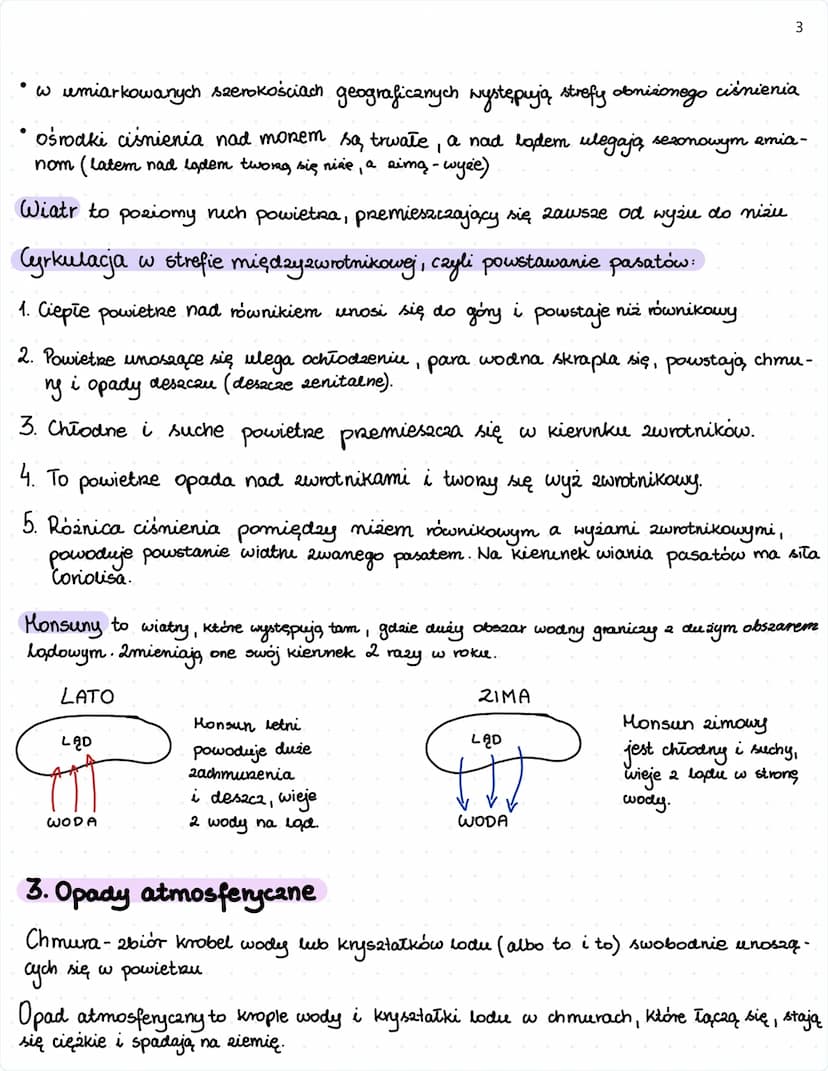 3
• w umiarkowanych szerokościach geograficznych występują strefy obniżonego ciśnienia
• ośrodki ciśnienia nad morzem są trwałe, a nad lądem ulegają sezonowym zmia-
nom (latem nad lądem tworzą się niże, a zimą - wyże)
Wiatr to poziomy ruch powietrza, przemieszczający się zawsze od wyżu do niżu
Cyrkulacja w strefie międzyzwrotnikowej, czyli powstawanie pasatów:
1. Ciepłe powietrze nad równikiem unosi się do góry i powstaje niż równikowy
2. Powietrze unoszące się ulega ochłodzeniu, para wodna skrapla się, powstają chmu-
ry i opady deszczu (deszcze zenitalne).
3. Chłodne i suche powietrze przemieszcza się w kierunku zwrotników.
4. To powietrze opada nad zwrotnikami i tworzy się wyż zwrotnikowy.
5. Różnica ciśnienia pomiędzy niżem równikowym a wyżami zwrotnikowymi,
powoduje powstanie wiatru zwanego pasatem. Na kierunek wiania pasatów ma siła
Coriolisa.
Monsuny to wiatry, które występują tam, gdzie duży obszar wodny graniczy z dużym obszarem
lądowym. Zmieniają one swój kierunek 2 razy w roku.
LATO
LĄD
WODA
Monsun letni
powoduje duże
zachmurzenia
i deszcz, wieje
z wody na ląd.
ZIMA
LĄD
WODA
Monsun zimowy
jest chłodny i suchy,
wieje z lądu w stronę
wody.
3. Opady atmosferyczne
Chmura - zbiór kropel wody lub kryształków lodu (albo to i to) swobodnie unoszą-
cych się w powietrzu
Opad atmosferyczny to krople wody i kryształki lodu w chmurach, które łączą się, stają
się ciężkie i spadają na ziemię.